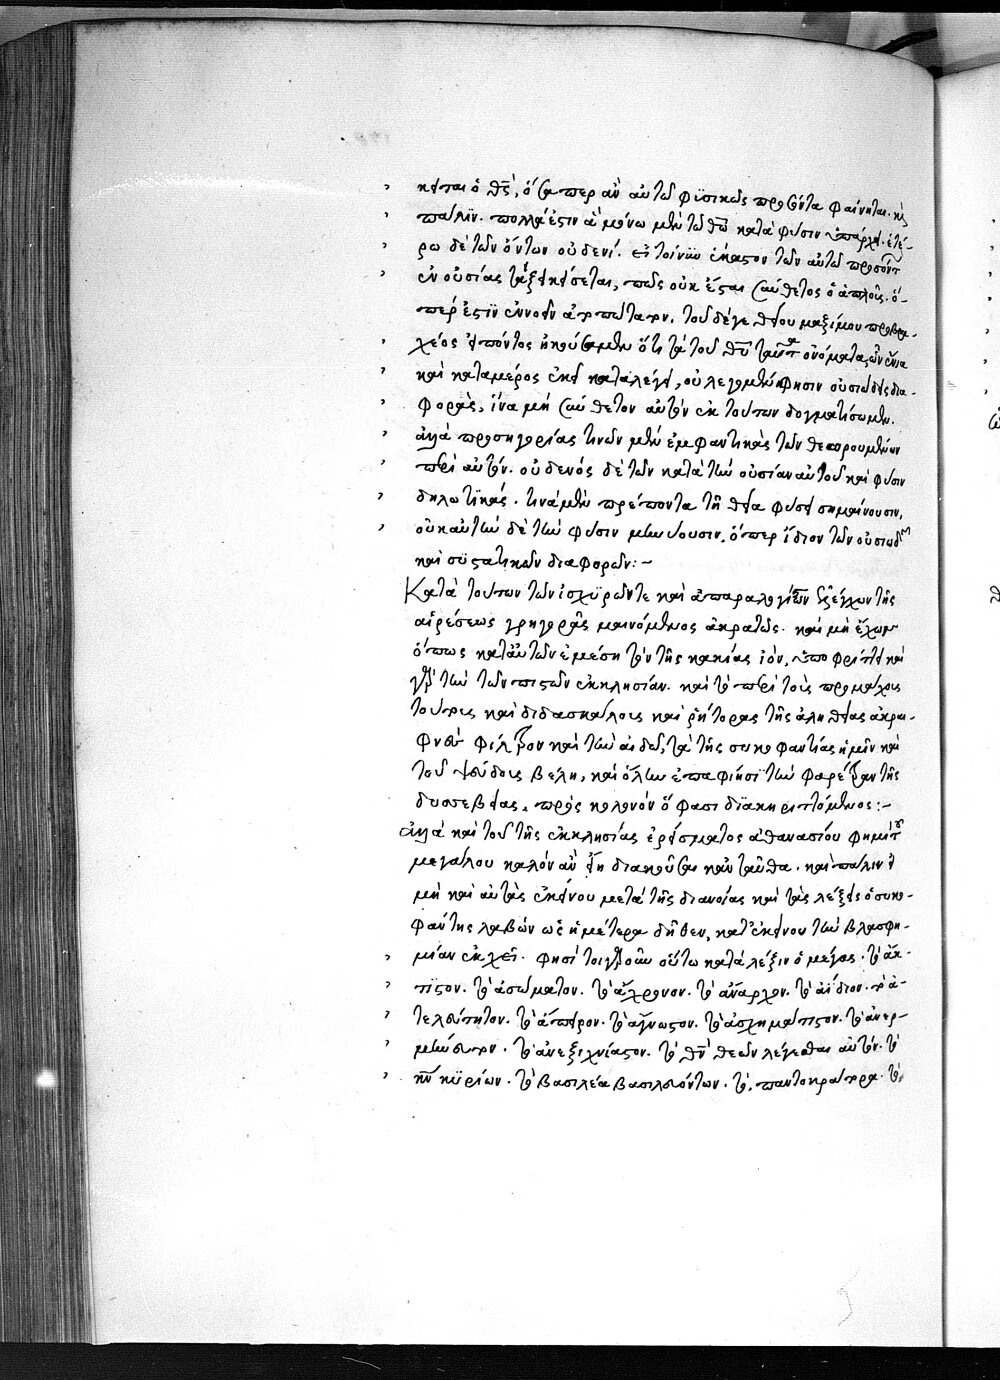 κεται ὁ θς, ὅσα περ ἂν αὐτῶ φϋσικῶς προσόντα φαίνηται. καὶ
πάλϊν. πολλά ἐστιν ἃ μόνω μὲν τῶ θῶ κατὰ φύσιν ὑπάρχει. ἑτέ-
ρω δὲ τῶν ὄντων οὐδενί. εἰ τοίνυν ἕκαστον τῶν αὐτῶ προσόντ
ἐν οὐσίας τάξει κείσεται, πῶς οὐκ ἔσται σύνθετος ὁ ἁπλοῦς. ὅ-
περ ἐστὶν ἐννοεῖν ἀτοπώτατον. τοῦ δέ γε θείου μαξίμου πρὸ βρα-
χέος εἰπόντος ἠκούσαμεν ὅτι τὰ τοῦ θῦ ταῦτα ὀνόματα
καὶ καταμέρος ἐκεῖ καταλέγει, οὐ λέγομεν φησιν οὐσιώδεις δια-
φοράς, ἵνα μὴ σύνθετον αὐτὸν ἐκ τούτων δογματίσωμεν.
ἀλλὰ προσηγορίας τινῶν μὲν ἐμφαντικὰς τῶν θεωρουμένων
περὶ αὐτόν. οὐδενὸς δὲ τῶν κατὰ τὴν οὐσίαν αὐτοῦ καὶ φύσιν
δηλωτϊκάς. τινὰ μὲν πρέποντα τῆ θεία φύσει σημαίνουσιν,
οὐκ αὐτὴν δὲ τὴν φύσιν μηνύουσιν. ὅπερ ἴδιον τῶν οὐσιωδ
καὶ συστατικῶν διαφορῶν:~
Κατὰ τούτων τῶν ἰσχϋρῶν τε καὶ ἀπαραλογίστων ἐλέγχων τῆς
αἱρέσεως γρηγορᾶς μαινόμενος ἀκρατῶς. καὶ μὴ ἔχων
ὅπως κατ αὐτῶν ἐμέση τὸν τῆς κακίας ἰὸν, ὑποφρίττει καὶ
τὴν τῶν πιστῶν ἐκκλησίαν. καὶ τὸ περὶ τοὺς προμάχους
τούτους καὶ διδασκάλους καὶ ῥήτορας τῆς ἀληθείας ἀκραι-
φνὲς φίλτρον καὶ τὴν αἰδῶ, τὰ τῆς συκοφαντίας ἡμῖν καὶ
τοῦ ψεύδους βέλη, καὶ ὅλην ἐπαφίησι τὴν φαρέτραν τῆς
δυσσεβείας, πρὸς κολοιὸν ὅ φασι διακηριττόμενος:~
ἀλλὰ καὶ τοῦ τῆς ἐκκλησίας ἐρείσματος ἀθανασίου φημὶ τοῦ
μεγάλου καλὸν ἂν εἴη διακοῦσαι κἀνταῦθα. καὶ πάλιν εἰ
μὴ καὶ αὐτὰς ἐκείνου μετὰ τῆς διανοίας καὶ τὰς λέξεις ὁ συκο-
φάντης λαβὼν ὡς ἡμέτερα δῆθεν, κατ ἐκείνου τὴν βλασφη-
μίαν ἐκχεῖ. φησὶ τοιγαροῦν οὕτω κατὰ λέξιν ὁ μέγας. τὸ ἄκ-
τιστον. τὸ ἀσώματον. τὸ ἄχρονον. τὸ ἄναρχον. τὸ ἀΐδιον. τὸ ἀ-
τελεύτητον. τὸ ἄπειρον. τὸ ἄγνωστον. τὸ ἀσχημάτιστον. τὸ ἀνερ-
μήνευτον. τὸ ἀνεξιχνίαστον. τὸ θν θεῶν λέγεσθαι αὐτόν. τὸ
κν κϋρίων. τὸ βασιλέα βασιλευόντων. τὸ, παντοκράτορα. τὸ,